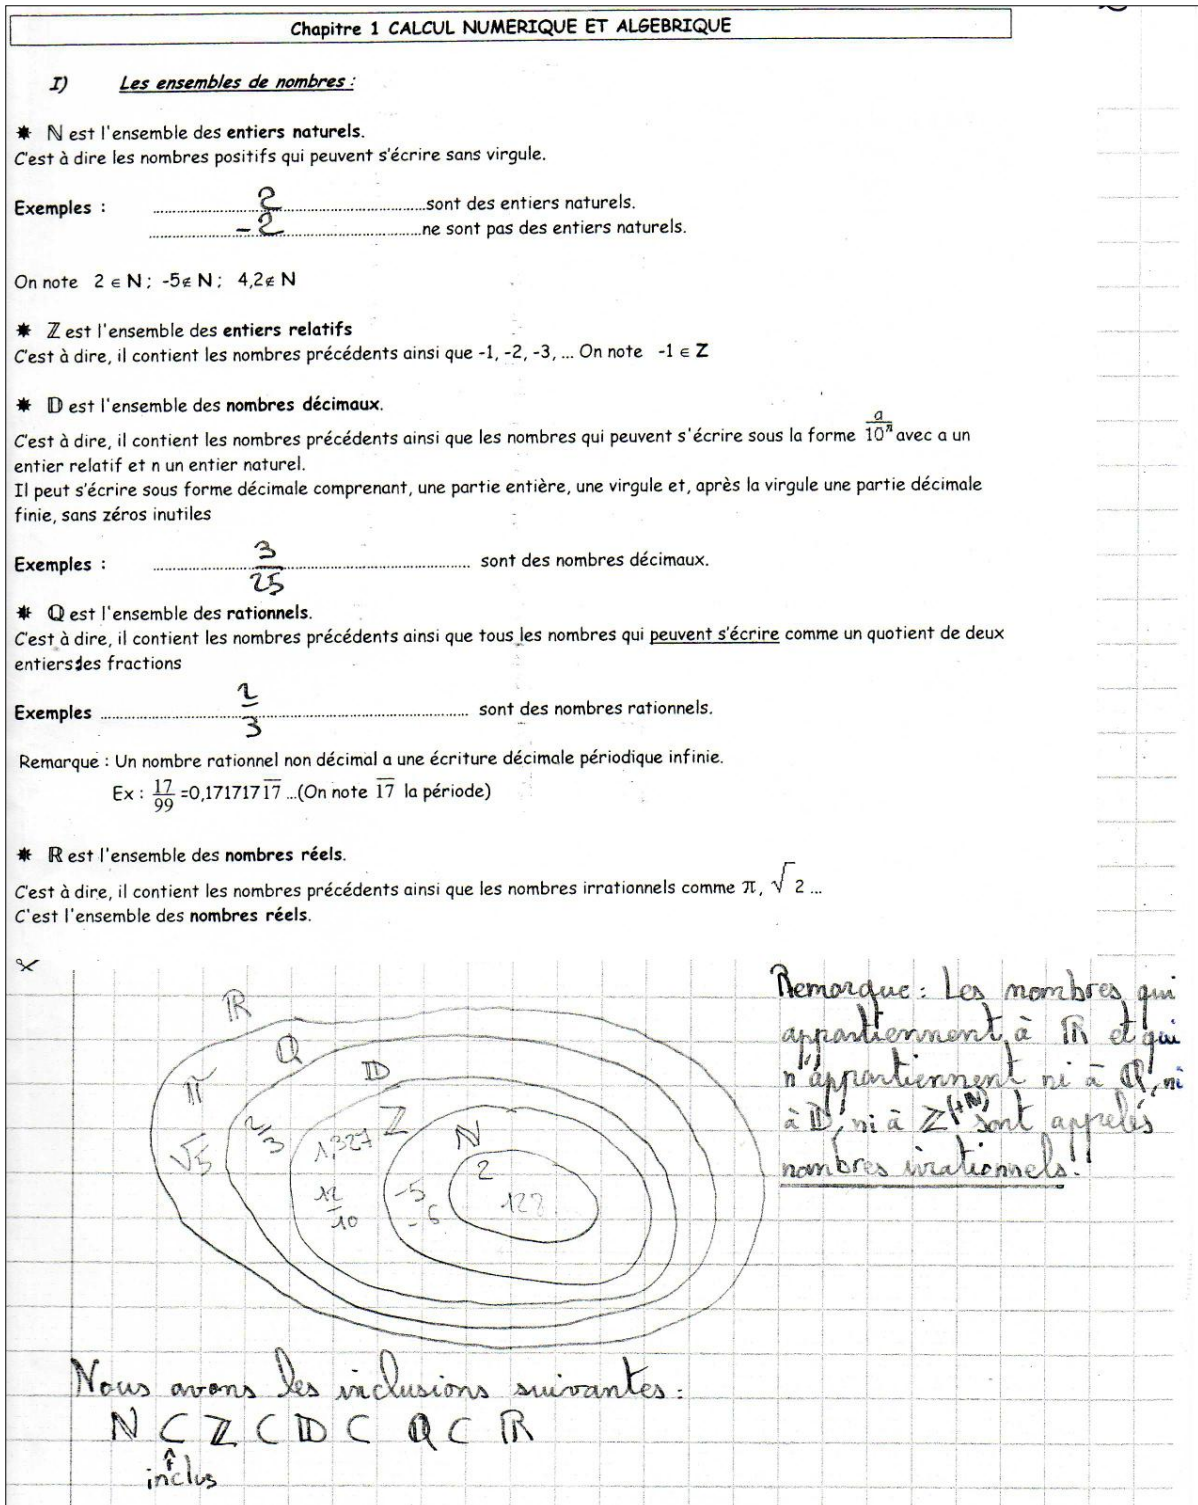 Chapitre 1 CALCUL NUMERIQUE ET ALGEBRIQUE
I) Les ensembles de nombres :
✷ ℕ est l'ensemble des entiers naturels.
C'est à dire les nombres positifs qui peuvent s'écrire sans virgule.
Exemples : ..........2..........sont des entiers naturels.
..........-2..........ne sont pas des entiers naturels.
On note 2 ∈ N ; -5∉ N ; 4,2∉ N
✷ ℤ est l'ensemble des entiers relatifs
C'est à dire, il contient les nombres précédents ainsi que -1, -2, -3, ... On note -1 ∈ Z
✷ 𝔻 est l'ensemble des nombres décimaux.
C'est à dire, il contient les nombres précédents ainsi que les nombres qui peuvent s'écrire sous la forme a/10ⁿ avec a un
entier relatif et n un entier naturel.
Il peut s'écrire sous forme décimale comprenant, une partie entière, une virgule et, après la virgule une partie décimale
finie, sans zéros inutiles
Exemples : ..........3/25.......... sont des nombres décimaux.
✷ ℚ est l'ensemble des rationnels.
C'est à dire, il contient les nombres précédents ainsi que tous les nombres qui peuvent s'écrire comme un quotient de deux
entiers des fractions
Exemples ..........2/3.......... sont des nombres rationnels.
Remarque : Un nombre rationnel non décimal a une écriture décimale périodique infinie.
Ex : 17/99 =0,1717171̅7̅ ...(On note 1̅7̅ la période)
✷ ℝ est l'ensemble des nombres réels.
C'est à dire, il contient les nombres précédents ainsi que les nombres irrationnels comme π, √2 ...
C'est l'ensemble des nombres réels.
ℝ
ℚ
𝔻
ℤ
ℕ
π
√5
2/3
1,327
12/10
-5
-6
2
122
Remarque : Les nombres qui
appartiennent à ℝ et qui
n'appartiennent ni à ℚ, ni
à 𝔻, ni à ℤ (+ℕ) sont appelés
nombres irrationnels.
Nous avons les inclusions suivantes :
ℕ ⊂ ℤ ⊂ 𝔻 ⊂ ℚ ⊂ ℝ
↑
inclus